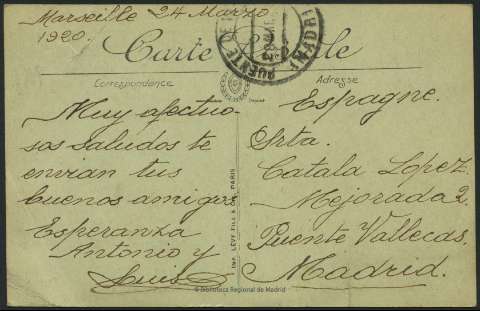 Marseille 24 Marzo
1920.
Carte
Correspondance
Adresse
Muy afectuo-
sos saludos te
envian tus
buenos amigos
Esperanza
Antonio y
Luis
Espagne.
Srta.
Catala Lopez.
Mejorada 2.
Puente Vallecas.
Madrid.
PUENTE DE
MADRI
IMP. LÉVY FILS & CIE, PARIS
© Biblioteca Regional de Madrid